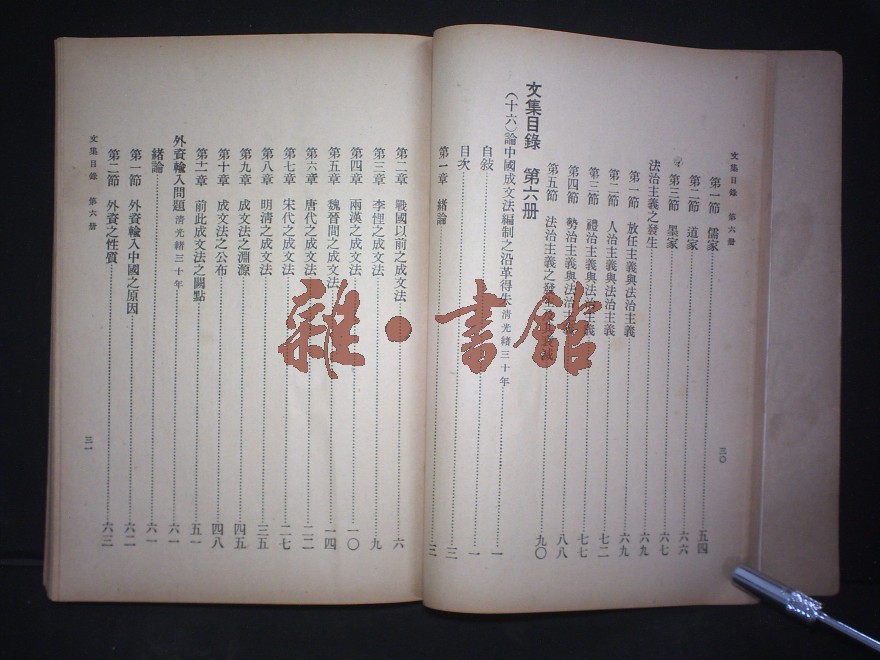 文集目錄 第六册
三〇
第一節 儒家 五四
第二節 道家 六六
第三節 墨家 六七
法治主義之發生 六九
第一節 放任主義與法治主義 六九
第二節 人治主義與法治主義 七二
第三節 禮治主義與法治主義 七七
第四節 勢治主義與法治主義 八八
第五節 法治主義之發生 滅 九〇
文集目錄 第六册
(十六)論中國成文法編制之沿革得失 清光緒三十年 一
自敍 一
目次 三
第一章 緒論 三
第二章 戰國以前之成文法 六
第三章 李悝之成文法 九
第四章 兩漢之成文法 一〇
第五章 魏晉間之成文法 一四
第六章 唐代之成文法 二二
第七章 宋代之成文法 二七
第八章 明清之成文法 三五
第九章 成文法之淵源 四五
第十章 成文法之公布 四八
第十一章 前此成文法之闕點 五一
外資輸入問題 清光緒三十年 六一
緒論 六一
第一節 外資輸入中國之原因 六二
第二節 外資之性質 六三
文集目錄 第六册
三一
雜·書館